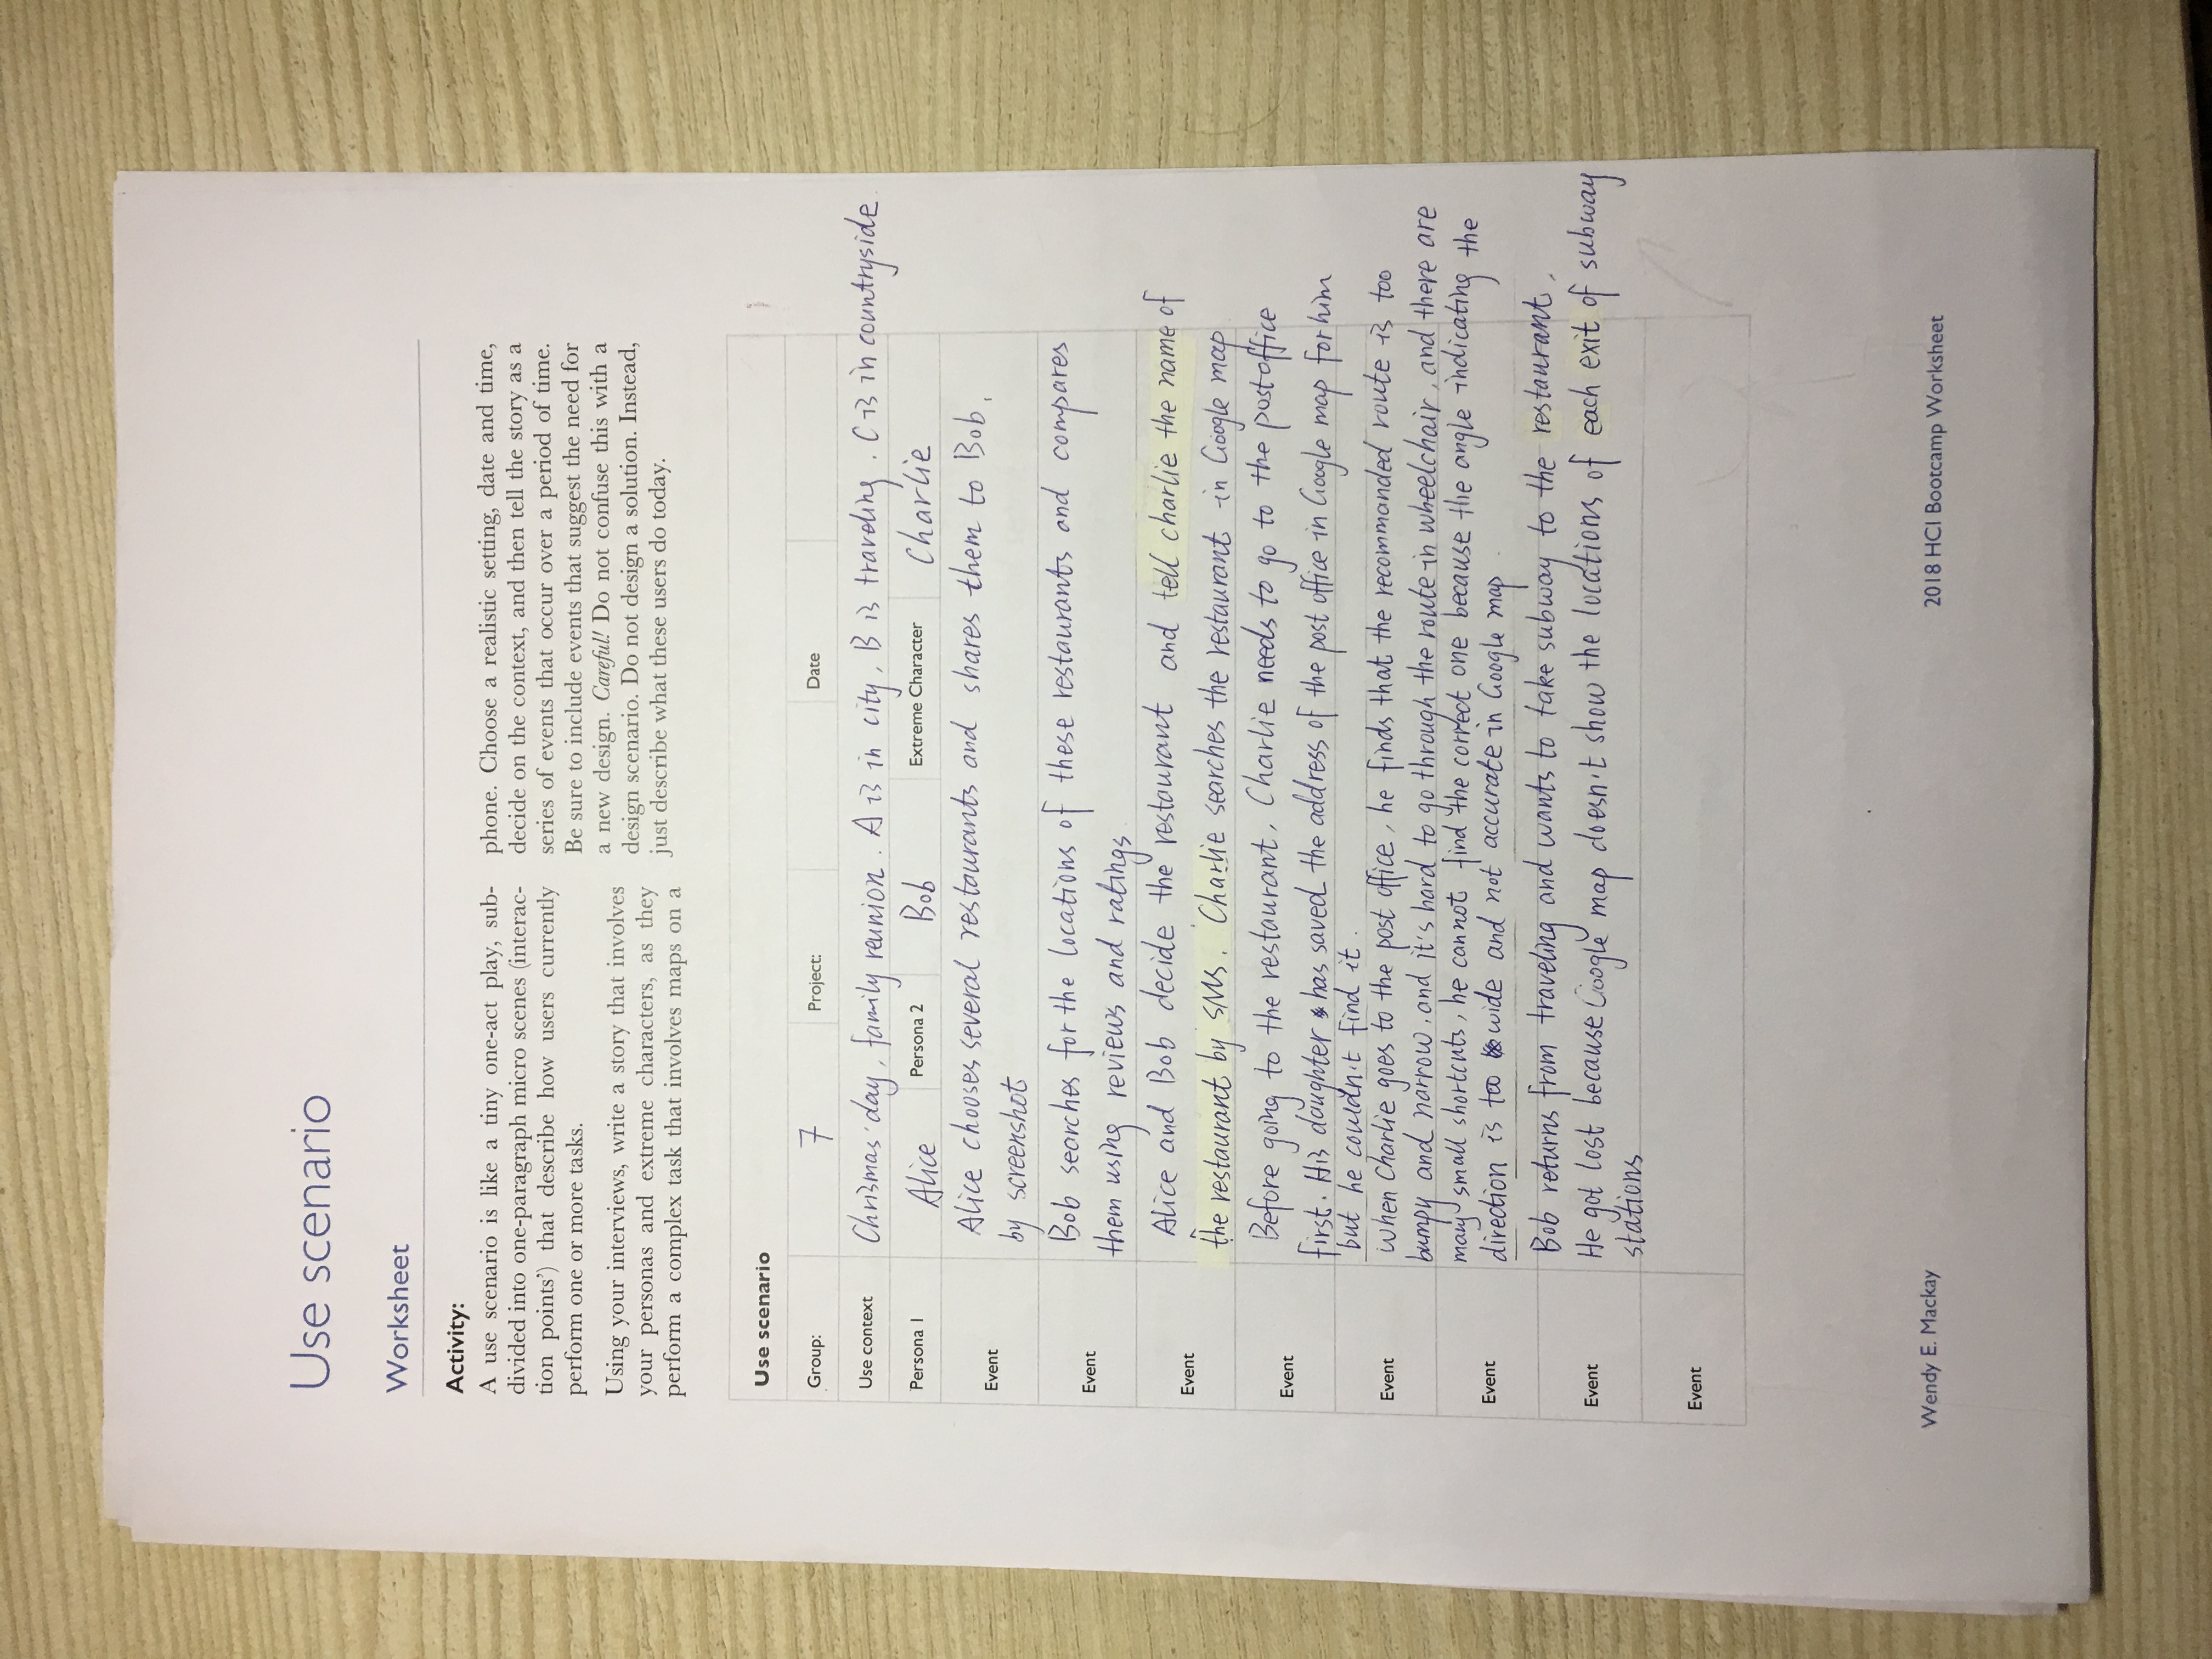 Use scenario
Worksheet
Activity:
A use scenario is like a tiny one-act play, sub-
divided into one-paragraph micro scenes (interac-
tion points’) that describe how users currently
perform one or more tasks.
Using your interviews, write a story that involves
your personas and extreme characters, as they
perform a complex task that involves maps on a
phone. Choose a realistic setting, date and time,
decide on the context, and then tell the story as a
series of events that occur over a period of time.
Be sure to include events that suggest the need for
a new design. Careful! Do not confuse this with a
design scenario. Do not design a solution. Instead,
just describe what these users do today.
Use scenario
Group: 7 Project: Date
Use context Chrismas day, family reunion. A is in city, B is traveling. C is in countryside
Persona 1 Alice Persona 2 Bob Extreme Character Charlie
Event Alice chooses several restaurants and shares them to Bob,
by screenshot
Event Bob searches for the locations of these restaurants and compares
them using reviews and ratings
Event Alice and Bob decide the restaurant and tell charlie the name of
the restaurant by SMS. Charlie searches the restaurant in Google map
Event Before going to the restaurant, Charlie needs to go to the postoffice
first. His daughter has saved the address of the post office in Google map for him
but he couldn't find it.
Event when Charlie goes to the post office, he finds that the recommanded route is too
bumpy and narrow, and it's hard to go through the route in wheelchair, and there are
Event many small shortcuts, he cannot find the correct one because the angle indicating the
direction is too wide and not accurate in Google map.
Event Bob returns from traveling and wants to take subway to the restaurant,
He got lost because Google map doesn't show the locations of each exit of subway
stations
Event
Wendy E. Mackay 2018 HCI Bootcamp Worksheet